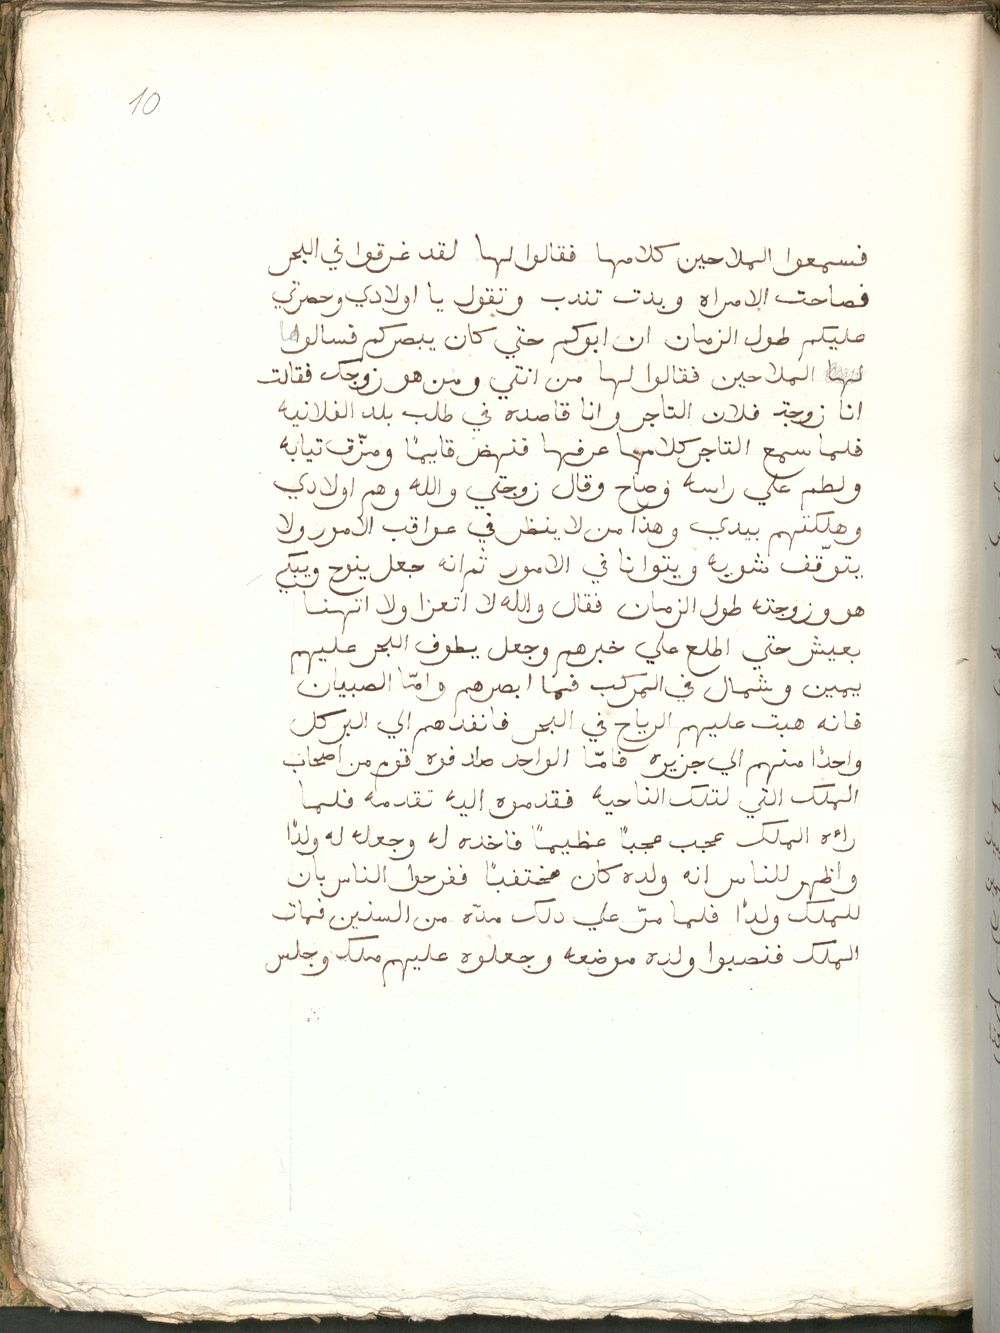 10
فسمعوا الملاحين كلامها فقالوا لها لقد غرقوا في البحر
فصاحت الامراه وبدت تندب وتقول يا اولادي وحصرتي
عليكم طول الزمان ان ابوكم حتي كان يبصركم فسالوا
لها الملاحين فقالوا لها من انتي ومن هو زوجك فقالت
انا زوجة فلان التاجر وانا قاصده في طلب بلد الفلانيه
فلما سمع التاجر كلامها عرفها فنهض قايمًا ومزّق تيابه
ولطم علي راسه وصاح وقال زوجتي والله وهم اولادي
وهلكتهم بيدي وهذا من لا ينظر في عواقب الامور ولا
يتوقّف شويه ويتوانا في الامور ثم انه جعل ينوح ويبكي
هو وزوجته طول الزمان فقال والله لا اتعزا ولا اتهنا
بعيش حتي اطلع علي خبرهم وجعل يطوف البحر عليهم
يمين وشمال في المركب فما ابصرهم وامّا الصبيان
فانه هبت عليهم الرياح في البحر فانفدهم الي البر كل
واحدًا منهم الي جزيره فامّا الواحد صادفوه قوم من اصحاب
الملك التي لتلك الناحيه فقدموه اليه تقدمه فلما
راءه الملك عجب عجبًا عظيمًا فاخده له وجعله له ولدًا
واظهر للناس انه ولده كان مختفيًا ففرحوا الناس بان
للملك ولدًا فلما مرّ علي دلك مدّه من السنين فمات
الملك فنصبوا ولده موضعه وجعلوه عليهم ملك وجلس